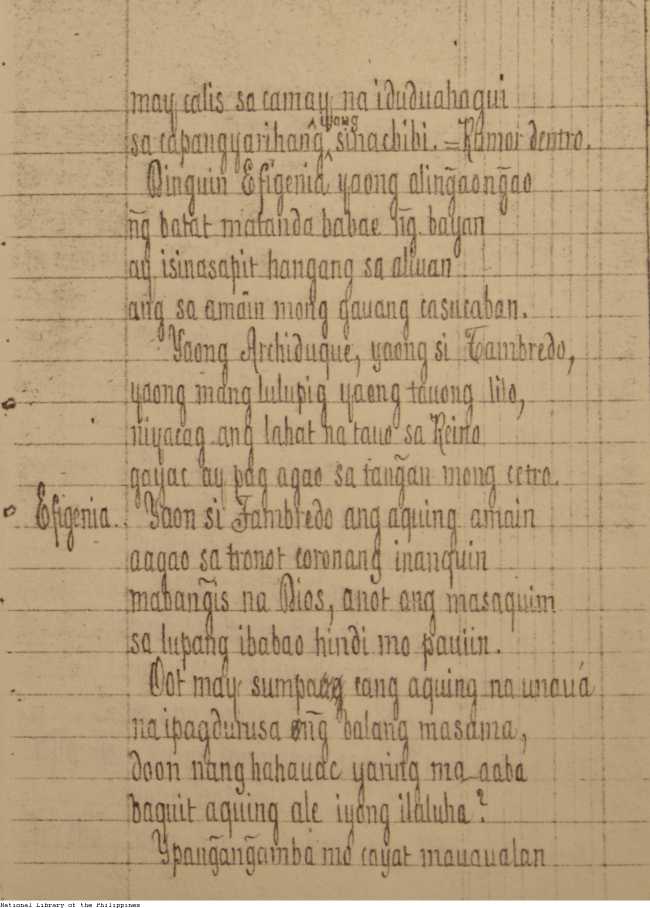 may calis sa camay na iduduahagui
sa capangyarihang̃ iyong sinachibi. = Rumor dentro.
Dinguin Efigenia yaong aling̃aong̃ao
ñg batat matanda babae ñg bayan
ay isinasapit hangang sa aliuan
ang sa amain mong gauang casucaban.
Yaong Archiduque, yaong si Tambredo,
yaong mang lulupig yaong tauong lilo,
niyacag ang lahat na tauo sa Reino
gayac ay pag agao sa tang̃an mong cetro.
Efigenia. Yaon si Tambredo ang aquing amain
aagao sa tronot coronang inanquin
mabang̃is na Dios, anot ang masaquim
sa lupang ibabao hindi mo pauiin.
Oot may sumpang cang aquing na unauá
na ipagdurusa ñg balang masama,
doon nang hahauac yaring ma aaba
baquit aquing ale iyong ilaluha?
Ypang̃ang̃amba mo cayat mauaualan
National Library of the Philippines